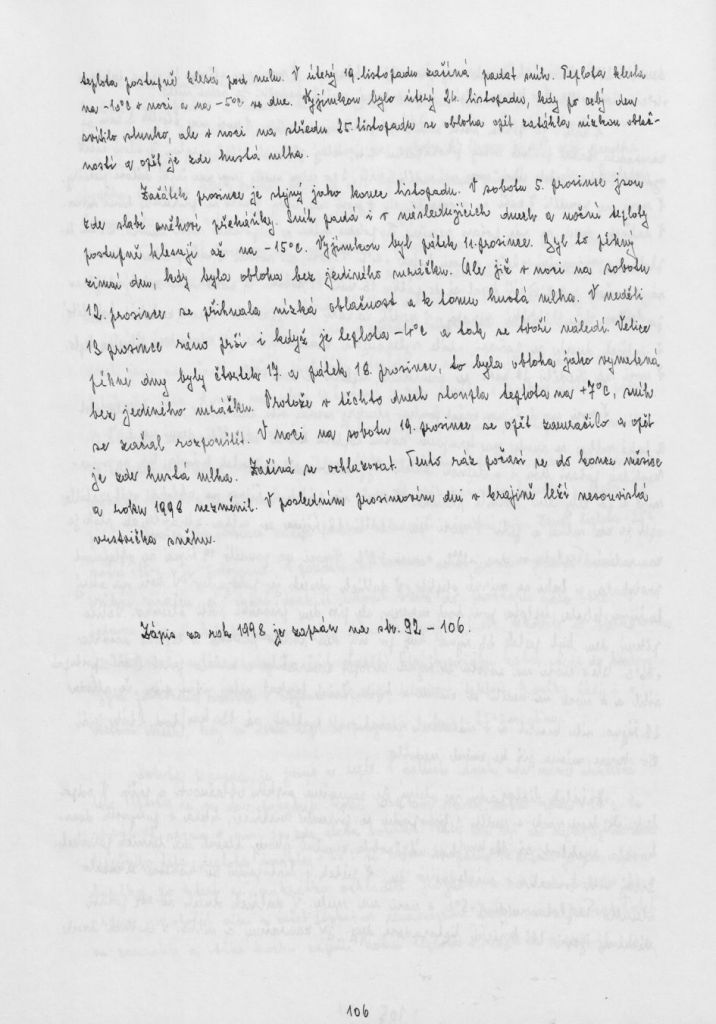 teplota postupně klesá pod nulu. V úterý 19. listopadu začíná padat sníh. Teplota klesla
na -10°C v noci a na -5°C ve dne. Vyjímkou bylo úterý 24. listopadu, kdy po celý den
svítilo slunko, ale v noci na středu 25. listopadu se obloha opět zatáhla nízkou oblač-
ností a opět je zde hustá mlha.
Začátek prosince je stejný jako konec listopadu. V sobotu 5. prosince jsou
zde slabé sněhové přeháňky. Sníh padá i v následujících dnech a noční teploty
postupně klesají až na -15°C. Vyjímkou byl pátek 11. prosince. Byl to pěkný
zimní den, kdy byla obloha bez jediného mráčku. Ale již v noci na sobotu
12. prosince se přihnala nízká oblačnost a k tomu hustá mlha. V neděli
13. prosince ráno prší i když je teplota -4°C a tak se tvoří náledí. Velice
pěkné dny byly čtvrtek 17. a pátek 18. prosince, to byla obloha jako vymetená
bez jediného mráčku. Protože v těchto dnech stoupla teplota na +7°C, sníh
se začal rozpouštět. V noci na sobotu 19. prosince se opět zamračilo a opět
je zde hustá mlha. Začíná se ochlazovat. Tento ráz počasí se do konce měsíce
a roku 1998 nezměnil. V posledním prosincovém dni v krajině leží nesouvislá
vrstvička sněhu.
Zápis za rok 1998 je zapsán na str. 92 - 106.
106